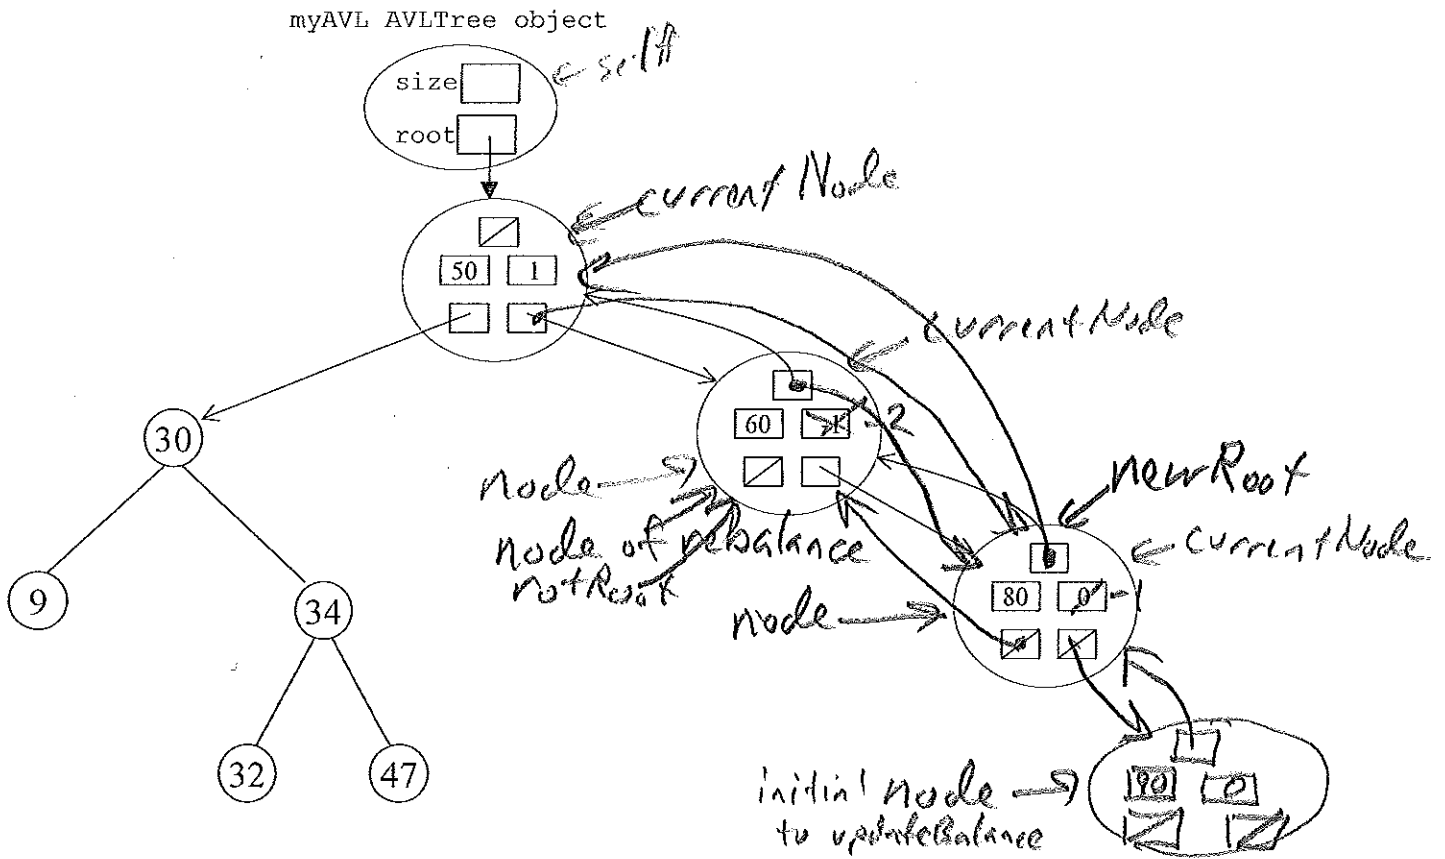 myAVL AVLTree object
size
← self
root
currentNode
50 1
currentNode
60 -1 -2
30
node
newRoot
node of rebalance
rotRoot
currentNode
80 0 -1
9
34
node
32
47
90 0
initial node
to updateBalance